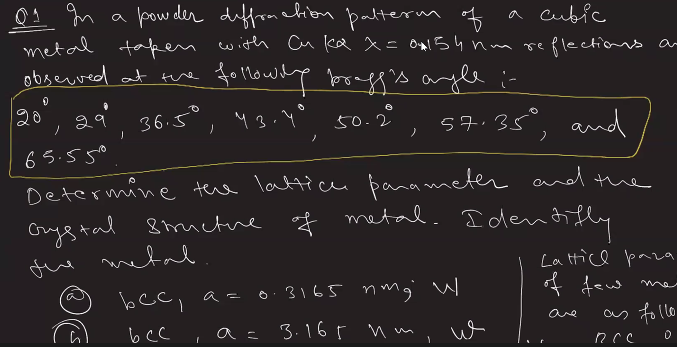 Q1 In a powder diffraction pattern of a cubic
metal taken with Cu Kα λ = 0.154 nm reflections ar
observed at the following bragg's angle :-
20°, 29°, 36.5°, 43.4°, 50.2°, 57.35°, and
65.55°.
Determine the lattice parameter and the
crystal structure of metal. Identify
the metal.
(a) bcc, a = 0.3165 nm; W
(b) bcc, a = 3.165 nm, W
Lattice para
of few me
are as follo
BCC